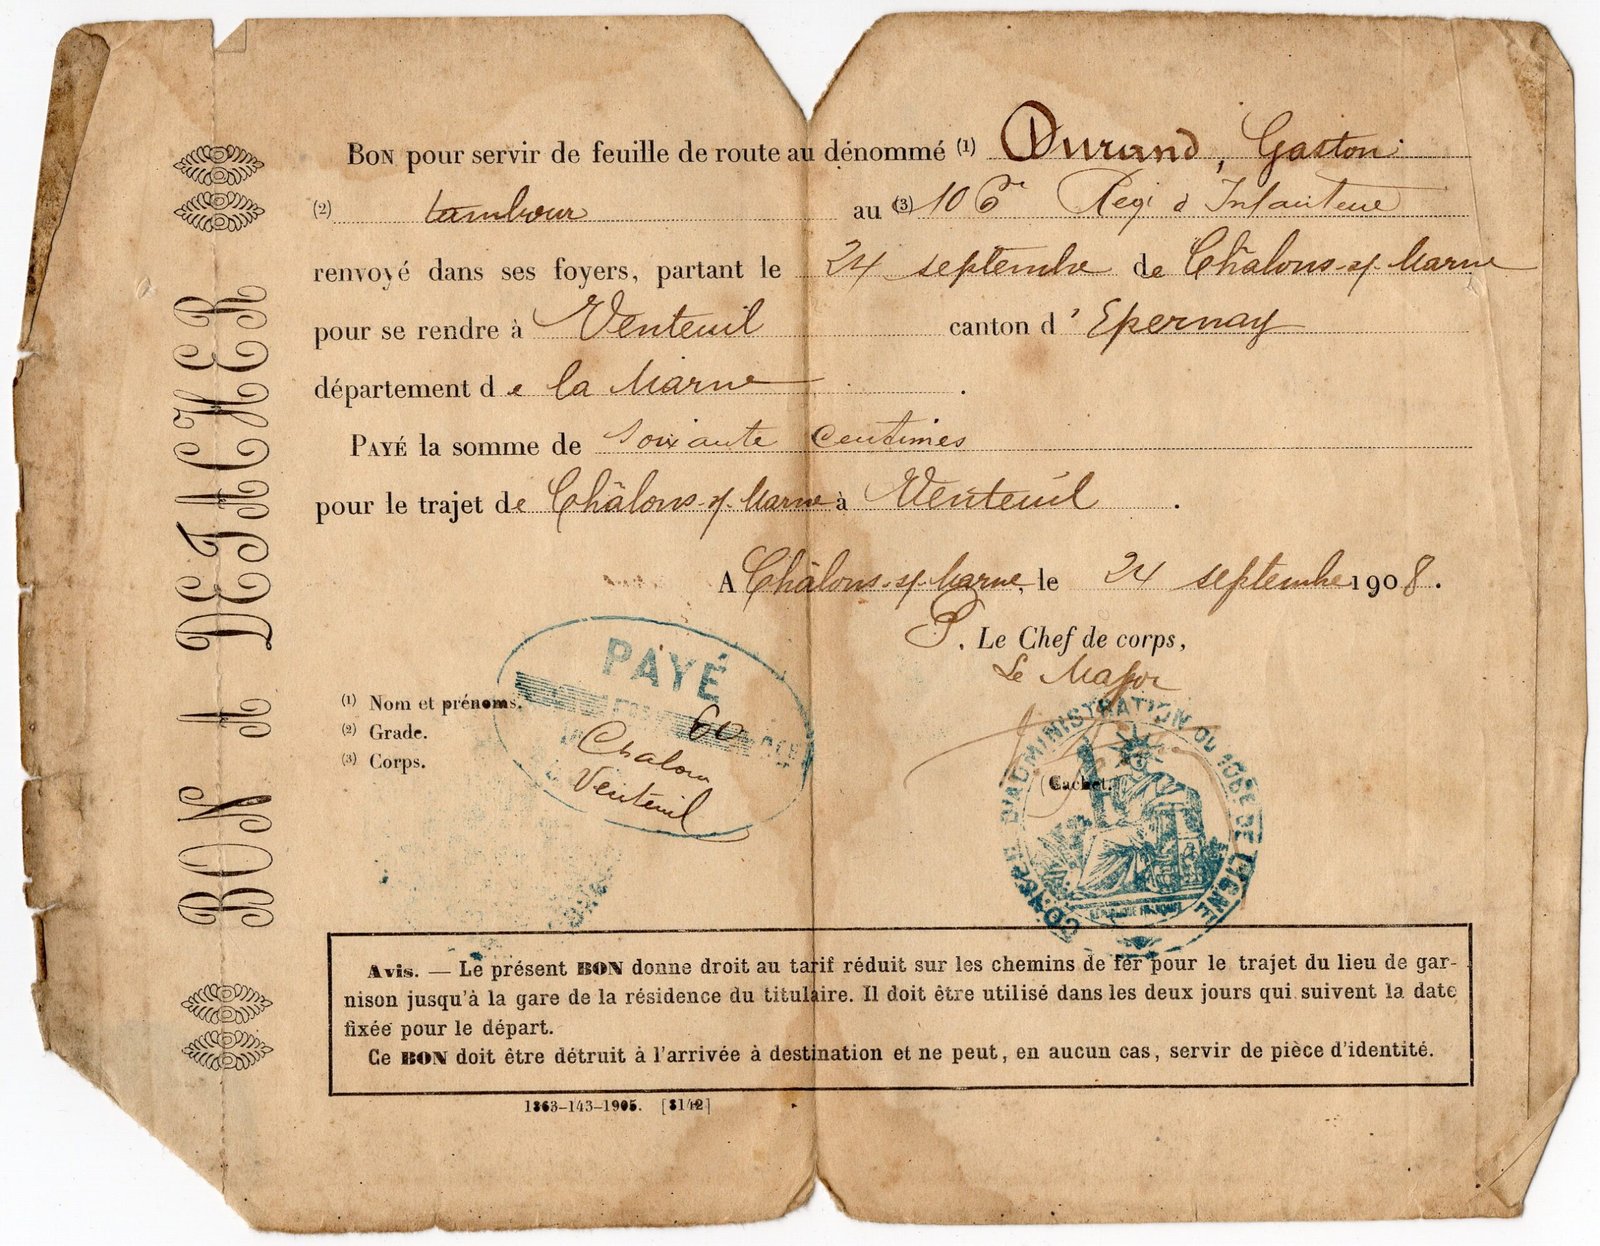 BON A DETACHER
BON pour servir de feuille de route au dénommé (1) Durand, Gaston
(2) tambour au (3) 106e Régt d'Infanterie
renvoyé dans ses foyers, partant le 24 septembre de Châlons-s/-Marne
pour se rendre à Venteuil canton d'Epernay
département de la Marne.
PAYÉ la somme de soixante centimes
pour le trajet de Châlons-s/-Marne à Venteuil.
A Châlons-s/-Marne, le 24 septembre 1908.
P. Le Chef de corps,
Le Major
PAYÉ
60
Chalons
Venteuil
(1) Nom et prénoms.
(2) Grade.
(3) Corps.
(Cachet.
D'ADMINISTRATION DU 106E DE LIGNE
RÉPUBLIQUE FRANÇAISE
Avis. — Le présent BON donne droit au tarif réduit sur les chemins de fer pour le trajet du lieu de gar-
nison jusqu'à la gare de la résidence du titulaire. Il doit être utilisé dans les deux jours qui suivent la date
fixée pour le départ.
Ce BON doit être détruit à l'arrivée à destination et ne peut, en aucun cas, servir de pièce d'identité.
1363-143-1905. [3142]